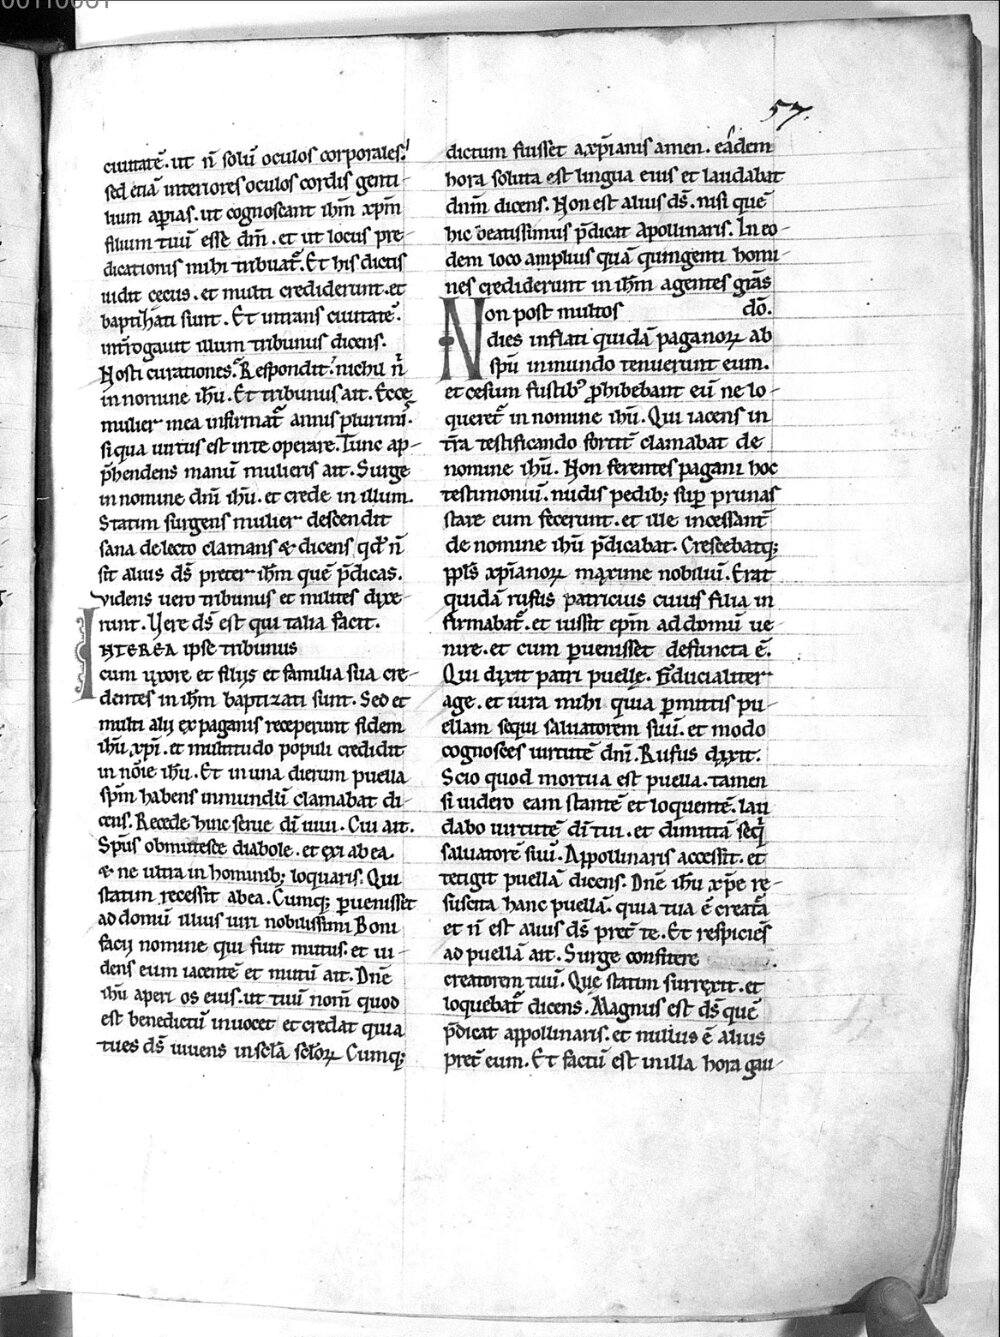 57.
ciuitatē. ut n̄ solū oculos corporales.
sed etiā interiores oculos cordis genti-
lium aꝑias. ut cognoscant ihm̄ xpm̄
filium tuū esse dm̄. et ut locus pre-
dicationis mihi tribuat᷑. Et his dictis
uidit cecus. et multi crediderunt. et
baptizati sunt. Et intrans ciuitatē.
int̄rogauit illum tribunus dicens.
Nosti curationes. Respondit. nichil n̄
in nomine ihū. Et tribunus ait. Ecce
mulier mea infirmat᷑ annis plurimis.
si qua uirtus est in te operare. Tunc ap-
p̄hendens manū mulieris ait. Surge
in nomine dnī ihū. et crede in illum.
Statim surgens mulier descendit
sana de lecto clamans & dicens qđ n̄
sit alius ds̄ preter ihm̄ quē p̄dicas.
Videns uero tribunus et milites dixe-
runt. Vere ds̄ est qui talia facit.
INTEREA ipse tribunus
cum uxore et filiis et familia sua cre-
dentes in ihm̄ baptizati sunt. Sed et
multi alii ex paganis receperunt fidem
ihū xpī. et multitudo populi credidit
in nōie ihū. Et in una dierum puella
spm̄ habens inmundū clamabat di-
cens. Recede hinc serue dī uiui. Cui ait.
Spūs obmutesce diabole. et exi ab ea.
& ne ultra in hominib; loquaris. Qui
statim recessit ab ea. Cumq; ꝑuenisset
ad domū illius uiri nobilissimi Boni
facii nomine qui fuit mutus. et ui-
dens eum iacentē et mutū ait. Dnē
ihū aperi os eius. ut tuū nom̄ quod
est benedictū inuocet et credat quia
tu es ds̄ uiuens in sc̄la sc̄loꝝ. Cumq;
dictum fuisset a xpīanis amen. eadem
hora soluta est lingua eius et laudabat
dnm̄ dicens. Non est alius ds̄. nisi quē
hic beatissimus p̄dicat Apollinaris. In eo-
dem loco amplius quā quingenti homi-
nes crediderunt in ihm̄ agentes grās
dō.
Non post multos
dies inflati quidā paganoꝝ ab
spū inmundo tenuerunt eum.
et cesum fustib⁹ ꝓhibebant eū ne lo-
queret᷑ in nomine ihū. Qui iacens in
t̄ra testificando fortit᷑ clamabat de
nomine ihū. Non ferentes pagani hoc
testimoniū. nudis pedib; sup̄ prunas
stare eum fecerunt. et ille incessant᷑
de nomine ihū p̄dicabat. Crescebatq;
ppl̄s xpīanoꝝ maxime nobiliū. Erat
quidā rufus patricius cuius filia in
firmabat᷑. et iussit epm̄ ad domū ue-
nire. et cum ꝑuenisset defuncta ē.
Qui dixit patri puellę. Fiducialiter
age. et iura mihi quia ꝑmittis pu-
ellam sequi saluatorem suū. et modo
cognosces uirtutē dnī. Rufus dixit.
Scio quod mortua est puella. tamen
si uidero eam stantē et loquentē. lau
dabo uirtutē dī tui. et dimittā seq̄
saluatorē suū. Appollinaris accessit. et
tetigit puellā dicens. Dnē ihū xpē re-
suscita hanc puellā. quia tua ē creat᷑a
et n̄ est alius ds̄ pret᷑ te. Et respiciēs
ad puellā ait. Surge confitere
creatorem tuū. Que statim surrexit. et
loquebat᷑ dicens. Magnus est ds̄ quē
p̄dicat appollinaris. et nullus ē alius
pret᷑ eum. Et factū est in illa hora gau-